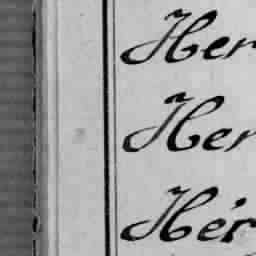 Her
Her
Hér